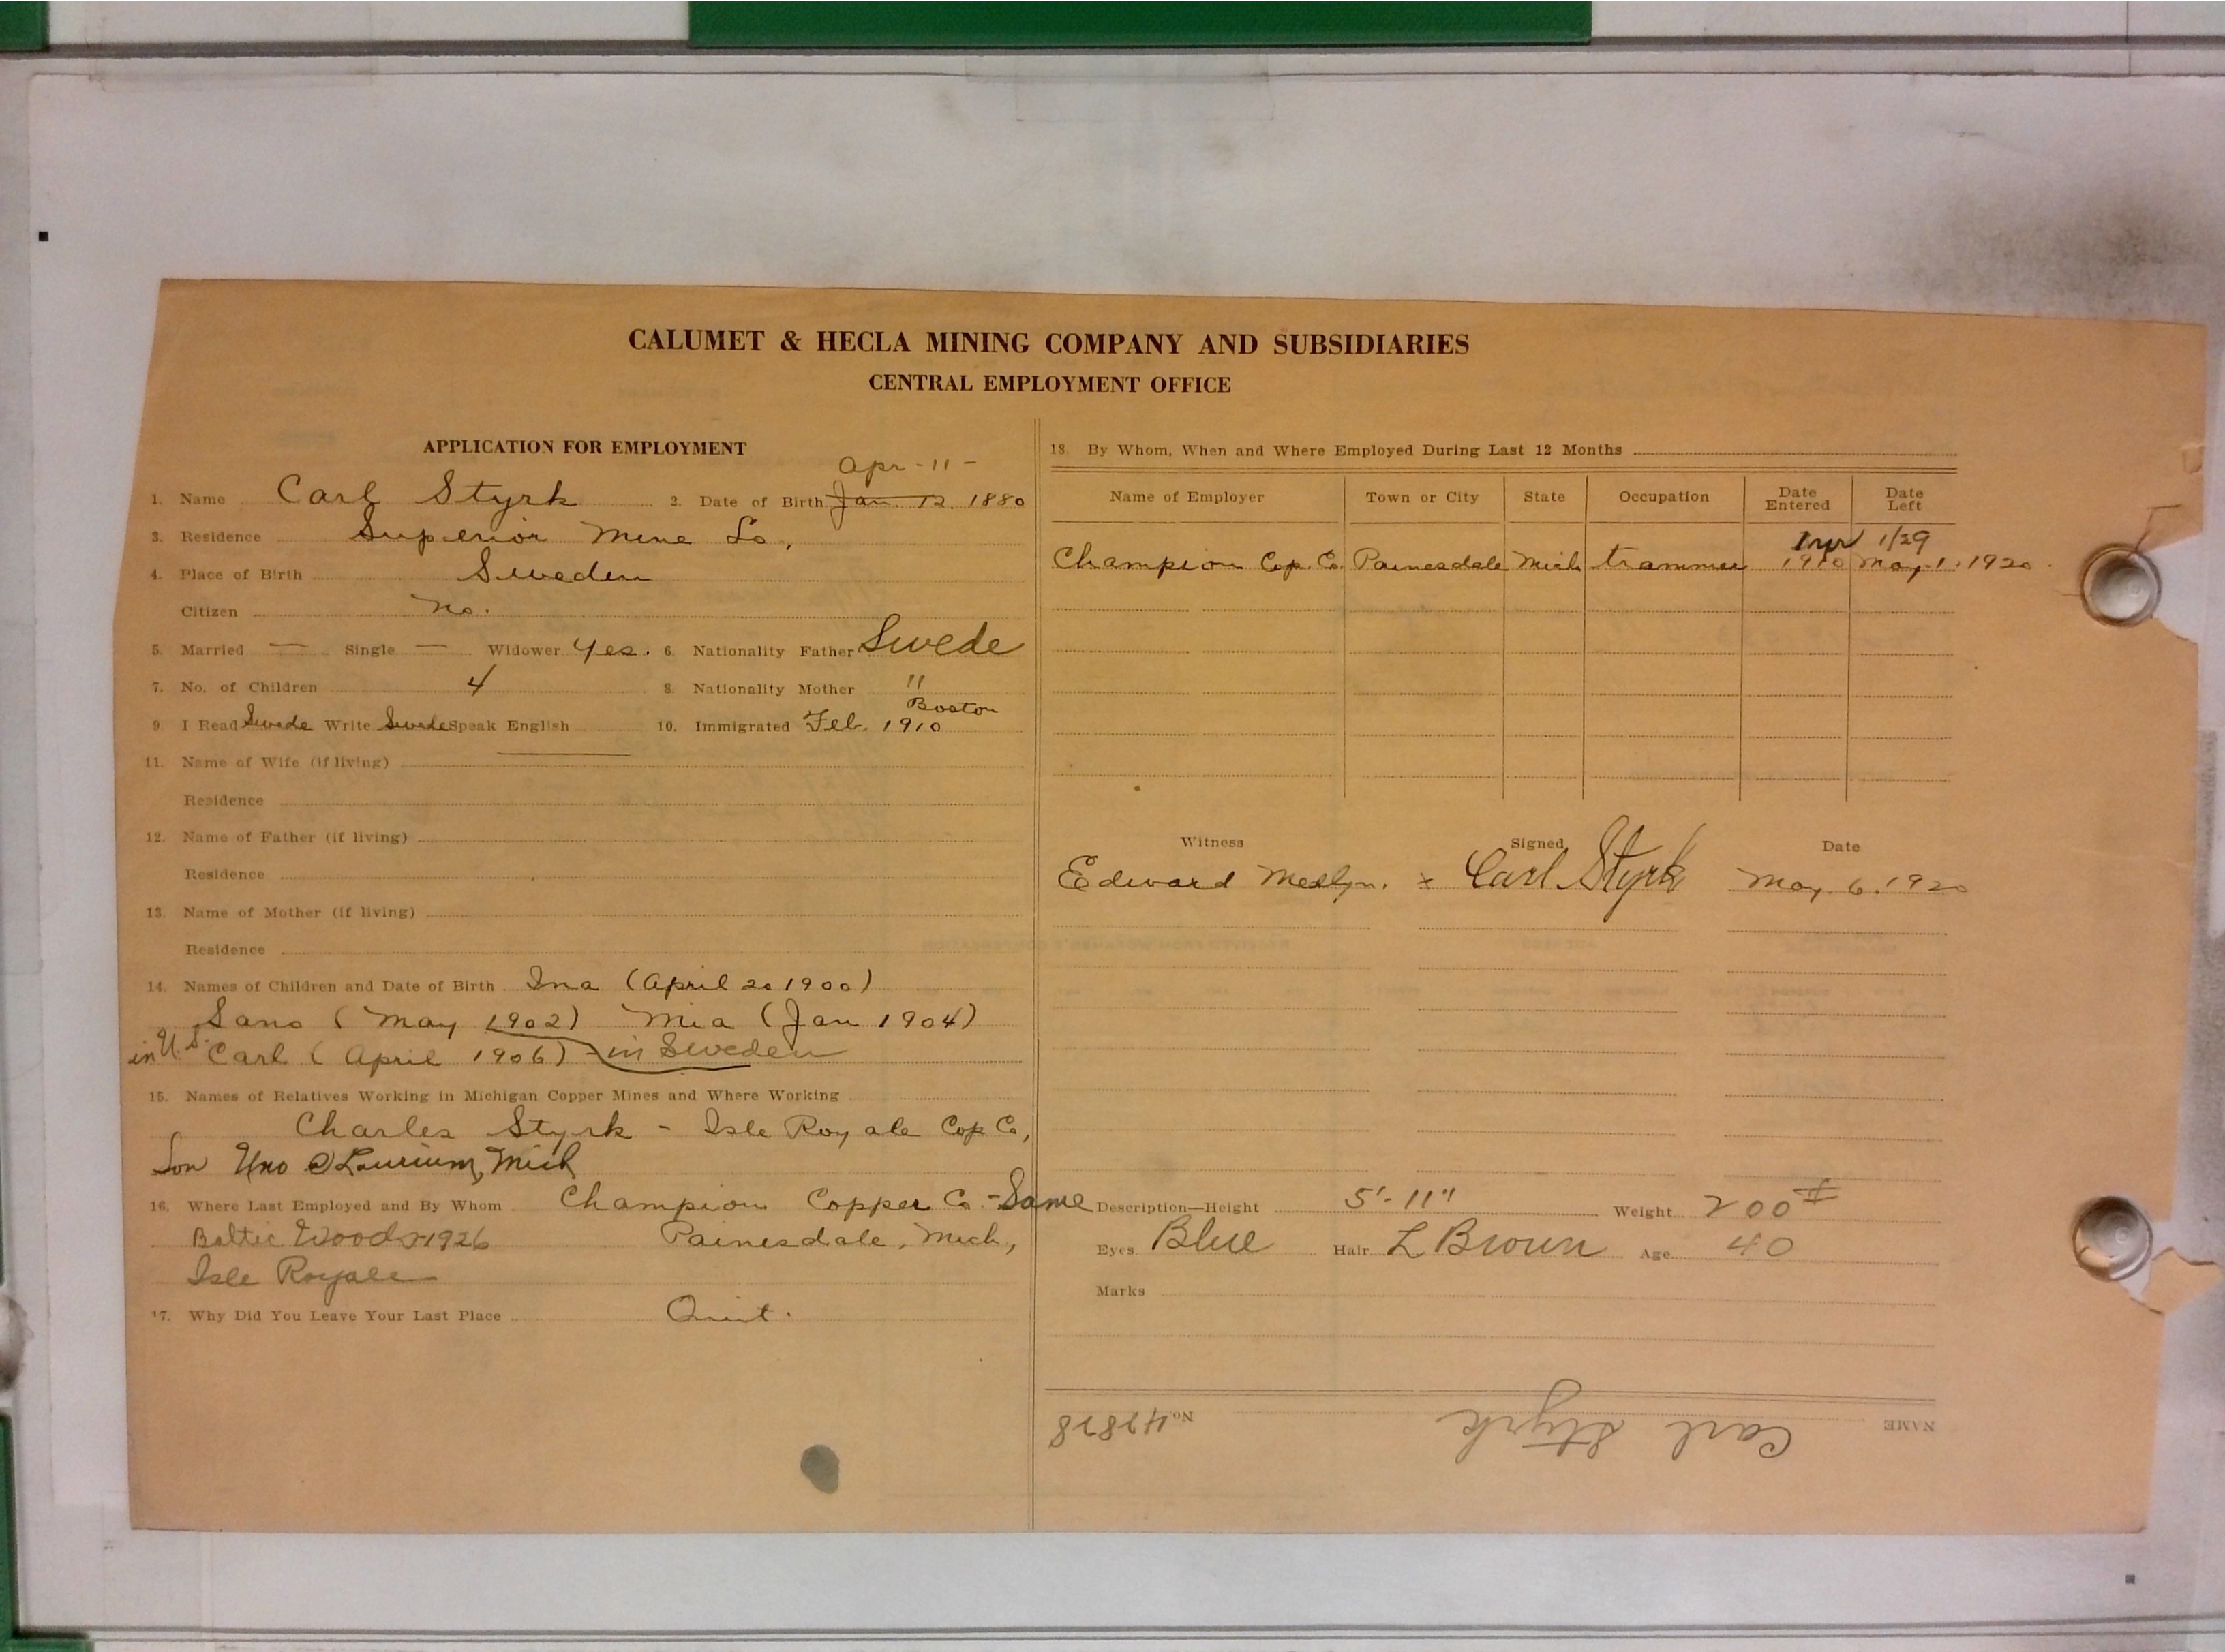 CALUMET & HECLA MINING COMPANY AND SUBSIDIARIES
CENTRAL EMPLOYMENT OFFICE
APPLICATION FOR EMPLOYMENT
Apr - 11 -
1. Name Carl Styrk 2. Date of Birth Jan. 12. 1880
3. Residence Superior Mine Lo,
4. Place of Birth Sweden
Citizen no.
5. Married — Single — Widower Yes. 6. Nationality Father Swede
7. No. of Children 4 8. Nationality Mother "
Boston
9. I Read Swede Write Swede Speak English 10. Immigrated Feb. 1910
11. Name of Wife (if living)
Residence
12. Name of Father (if living)
Residence
13. Name of Mother (if living)
Residence
14. Names of Children and Date of Birth Ina (April 20 1900)
Sano (May 1902) Mia (Jan 1904)
in U.S. Carl (April 1906) - in Sweden
15. Names of Relatives Working in Michigan Copper Mines and Where Working
Charles Styrk - Isle Royale Cop Co,
Son Uno @ Laurium, Mich
16. Where Last Employed and By Whom Champion Copper Co. - Same
Baltic Woods 1926 Painesdale, Mich,
Isle Royale
17. Why Did You Leave Your Last Place Quit.
18. By Whom, When and Where Employed During Last 12 Months
Name of Employer Town or City State Occupation Date Entered Date Left
1 yr 1/29
Champion Cop. Co. Painesdale Mich trammer 1910 May. 1. 1920.
Witness Signed Date
Edward x Carl Styrk May. 6. 1920
Description—Height 5'-11" Weight 200#
Eyes Blue Hair L Brown Age 40
Marks
NAME Carl Styrk No. 42828